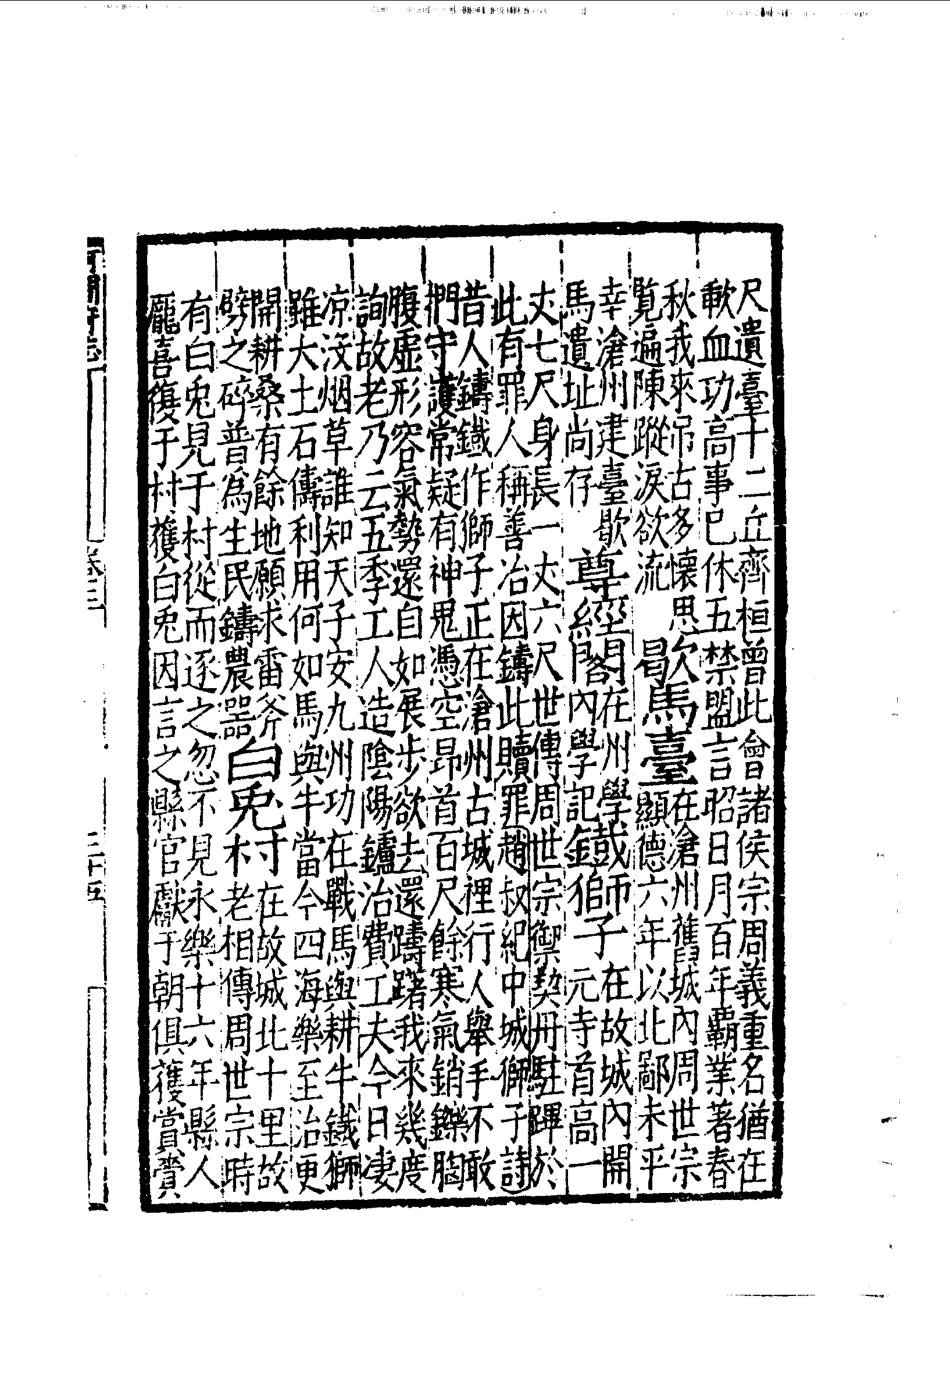 尺遺臺十二丘齊桓曾此會諸侯宗周義重名猶在
歃血功高事已休五禁盟言昭日月百年霸業著春
秋我來吊古多懷思
覽遍陳蹤淚欲流
歇馬臺
在滄州舊城內周世宗
顯德六年以北鄙未平
幸滄州建臺歇
馬遺址尚存
尊經閣
在州學
內學記
鐵獅子
在故城內開
元寺首高一
丈七尺身長一丈六尺世傳周世宗禦契丹駐蹕於
此有罪人稱善冶因鑄此贖罪趙叔紀中城獅子詩
昔人鑄鐵作獅子正在滄州古城裡行人舉手不敢
捫守護常疑有神鬼憑空昂首百尺餘寒氣銷鑠胸
腹虛形容氣勢還自如展步欲去還躊躇我來幾度
詢故老乃云五季工人造陰陽鑪冶費工夫今日凄
凉沒烟草誰知天子安九州功在戰馬與耕牛鐵獅
雖大土石儔利用何如馬與牛當今四海樂至治更
開耕桑有餘地願求雷斧
劈之碎普為生民鑄農器
白兔村
在故城北十里故
老相傳周世宗時
有白兔見于村從而逐之忽不見永樂十六年縣人
龐喜復于村獲白兔因言之縣官獻于朝俱獲賞賚
河間府志
卷三
三十五